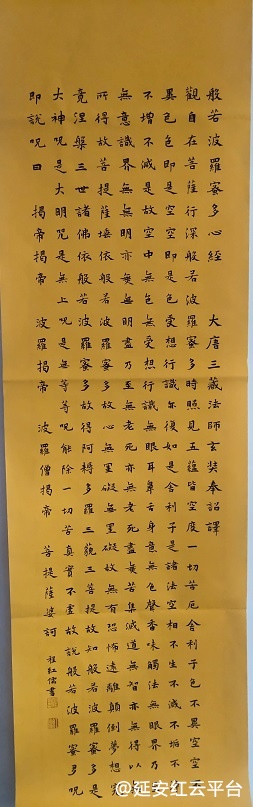 般若波羅蜜多心經 大唐三藏法師玄奘奉詔譯
觀自在菩薩行深般若波羅蜜多時照見五蘊皆空度一切苦厄舍利子色不異空空不
異色色即是空空即是色受想行識亦復如是舍利子是諸法空相不生不滅不垢不淨
不增不減是故空中無色無受想行識無眼耳鼻舌身意無色聲香味觸法無眼界乃至
無意識界無無明亦無無明盡乃至無老死亦無老死盡無苦集滅道無智亦無得以無
所得故菩提薩埵依般若波羅蜜多故心無罣礙無罣礙故無有恐怖遠離顛倒夢想究
竟涅槃三世諸佛依般若波羅蜜多故得阿耨多羅三藐三菩提故知般若波羅蜜多是
大神呪是大明呪是無上呪是無等等呪能除一切苦真實不虛故說般若波羅蜜多呪
即說呪曰 揭帝揭帝 波羅揭帝 波羅僧揭帝 菩提薩婆訶 程紅儒書
@延安红云平台